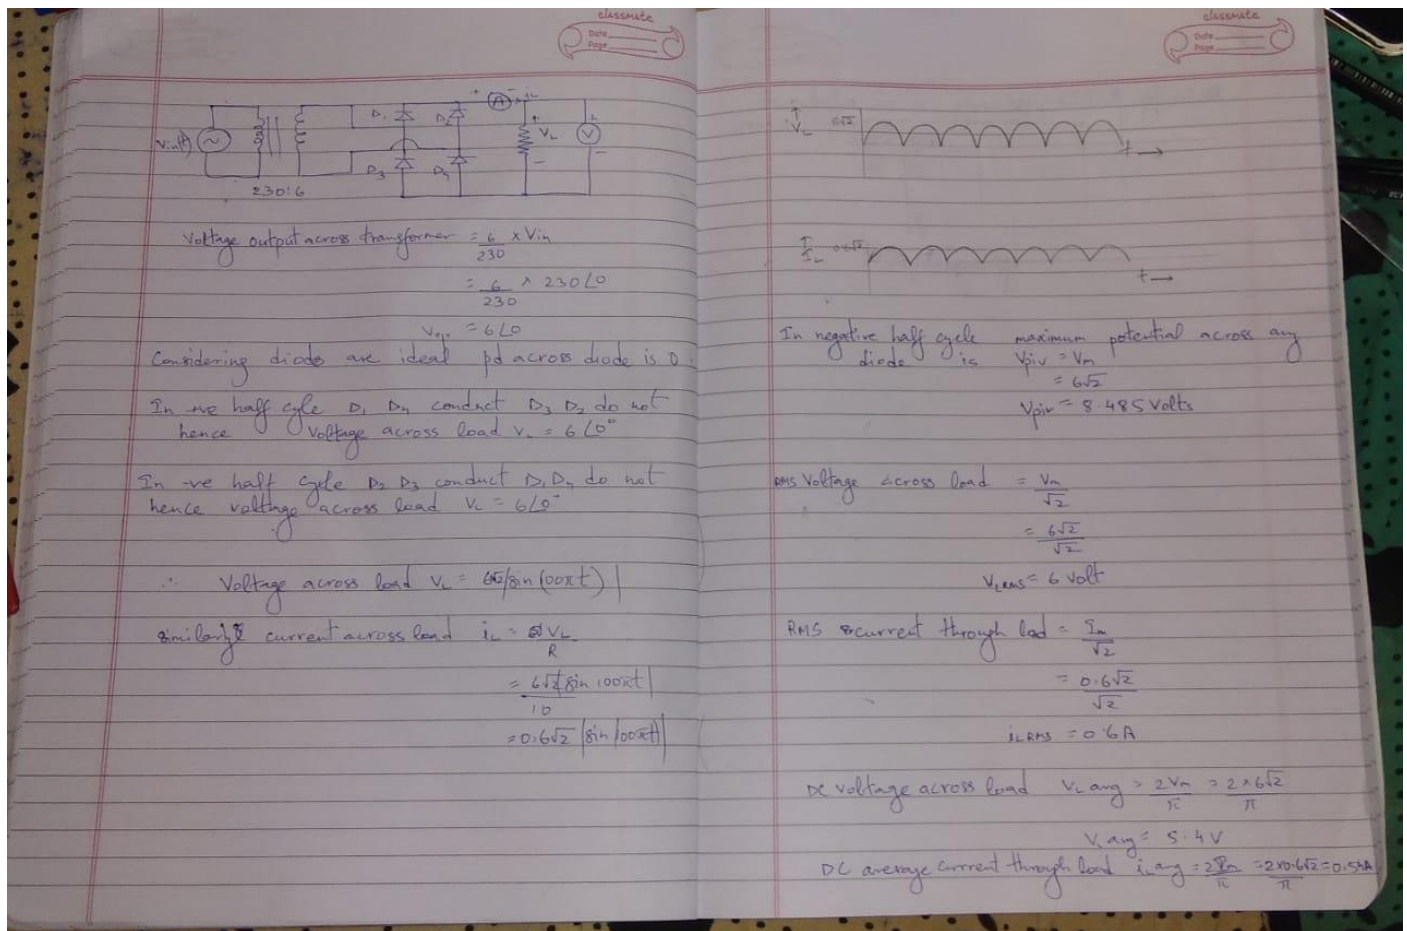 classmate
Date
Page
Vin(t)
D1 D2
A
iL
VL
V
D3 D4
230:6
Voltage output across transformer = 6/230 × Vin
= 6/230 × 230∠0
= 6∠0
Considering diodes are ideal pd across diode is 0.
In +ve half cyle D1 D4 conduct D3 D2 do not
hence Voltage across load VL = 6∠0°
In -ve half cycle D2 D3 conduct D1 D4 do not
hence voltage across load VL = 6∠0°
∴ Voltage across load VL = 6√2|sin(100πt)|
similarly current across load iL = VL/R
= 6√2|sin 100πt|/10
= 0.6√2 |sin 100πt|
classmate
Date
Page
VL 6√2
t
IL 0.6√2
t
In negative half cycle maximum potential across any
diode is Vpiv = Vm
= 6√2
Vpiv = 8.485 Volts
RMS Voltage across load = Vm/√2
= 6√2/√2
VLRMS = 6 Volt
RMS current through lod = Im/√2
= 0.6√2/√2
iLRMS = 0.6A
DC voltage across load VL avg = 2Vm/π = 2×6√2/π
VL avg = 5.4 V
DC average current through load iL avg = 2Im/π = 2×0.6√2/π = 0.54A